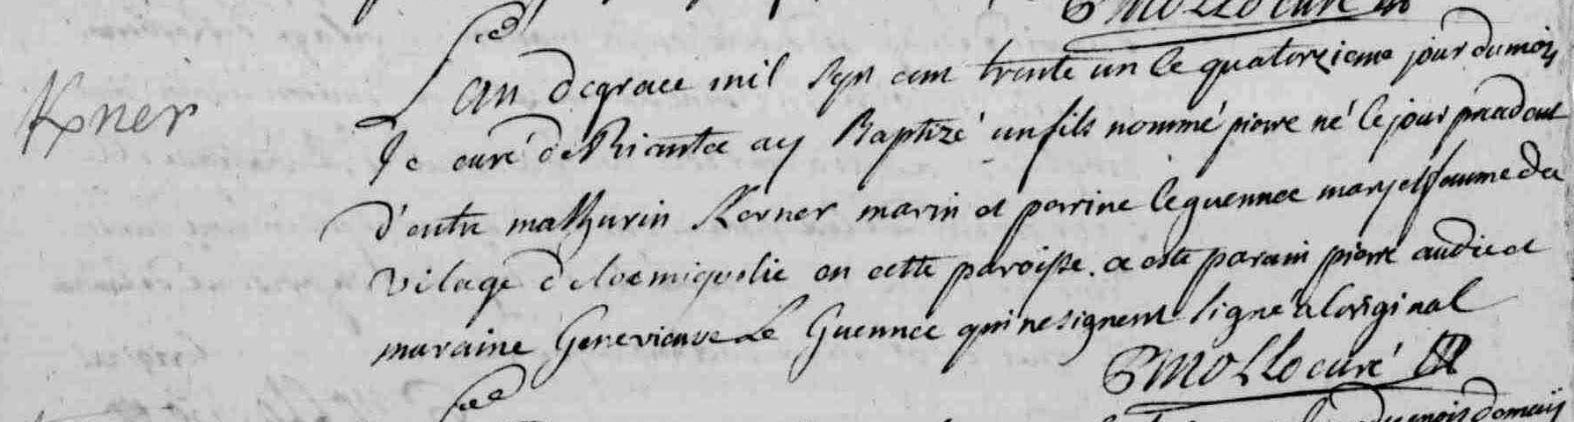 PMollo curé
Kner
L'an de grace mil sept cent trente un le quatorzieme jour du mois
Je curé de Riantec ay Baptizé un fils nommé pierre né le jour precedent
d'entre mathurin Kerner marin et perrine le guennec mary et famme du
vilage de locmiquelic en cette paroisse. a esté parain pierre audic et
maraine Genevieuve Le Guennec qui ne signent signé a l'original
PMollo curé
du mois de may